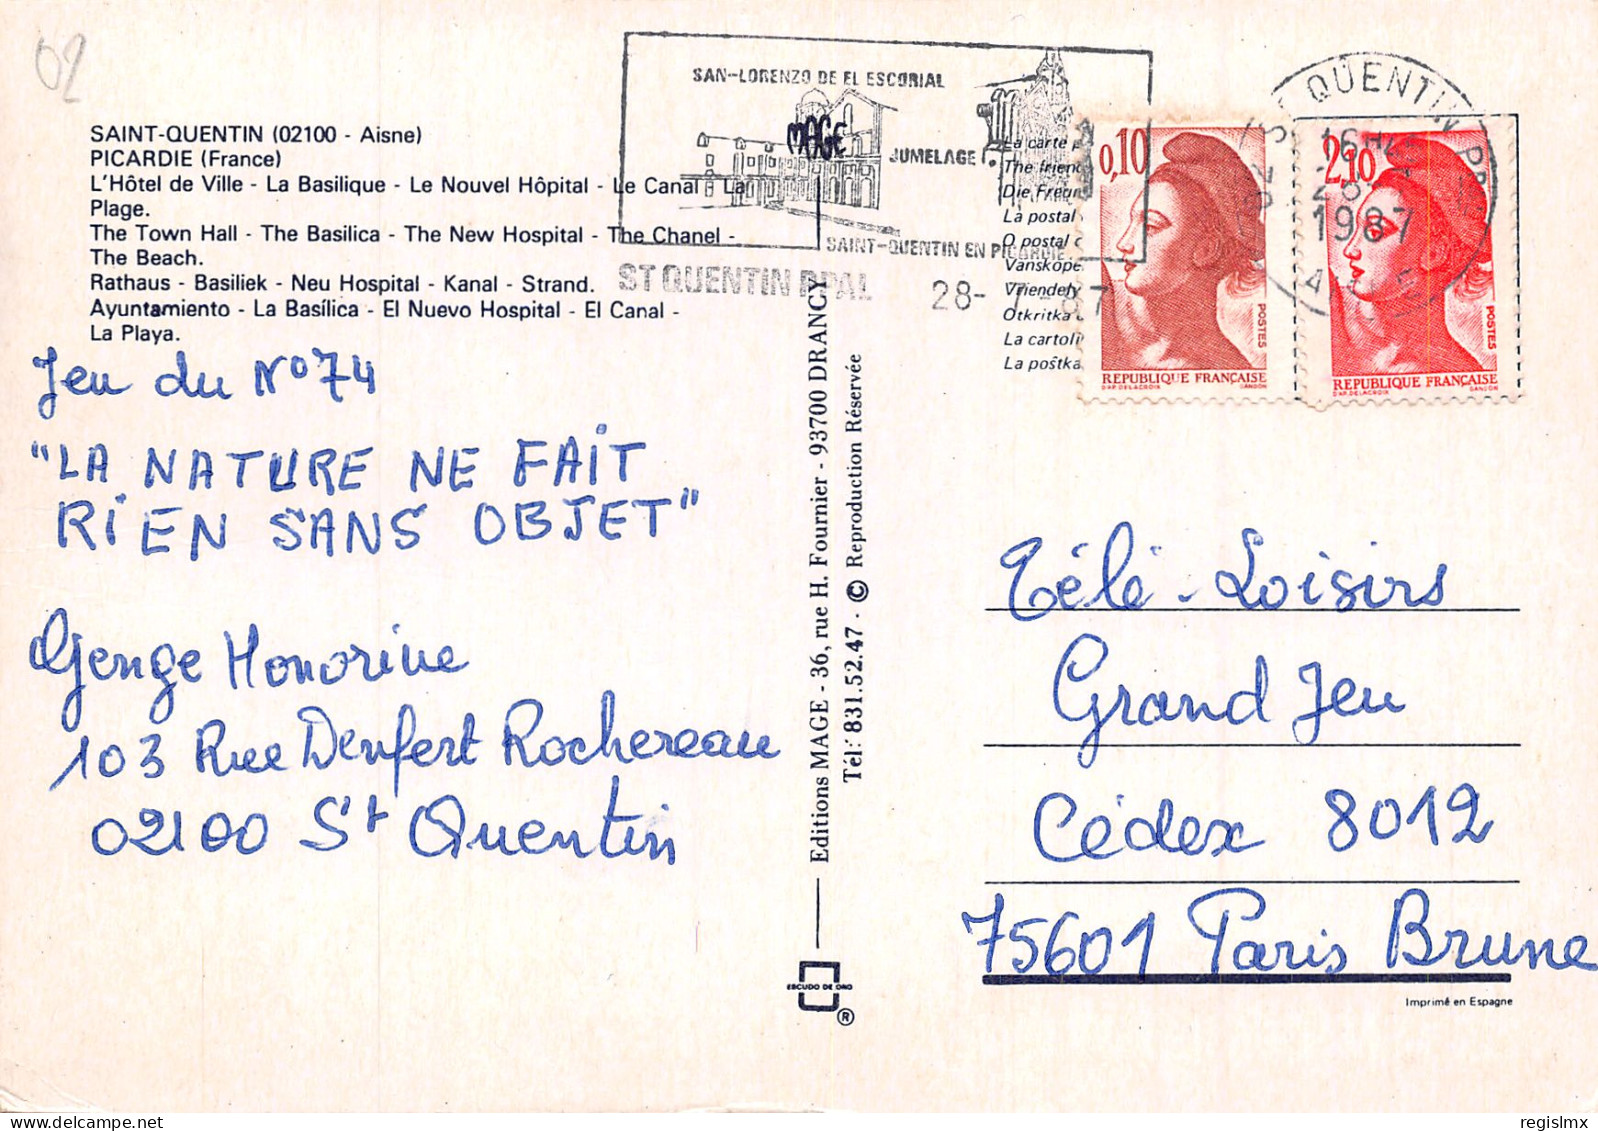 02
SAINT-QUENTIN (02100 - Aisne)
PICARDIE (France)
L'Hôtel de Ville - La Basilique - Le Nouvel Hôpital - Le Canal - La
Plage.
The Town Hall - The Basilica - The New Hospital - The Chanel -
The Beach.
Rathaus - Basiliek - Neu Hospital - Kanal - Strand.
Ayuntamiento - La Basílica - El Nuevo Hospital - El Canal -
La Playa.
SAN-LORENZO DE EL ESCORIAL
MAGE
JUMELAGE
SAINT-QUENTIN EN PICARDIE
ST QUENTIN PPAL
28- -87
La carte
The friend
Die Freun
La postal
O postal
Vanskope
Vriendely
Otkritka
La cartoli
La poŝtka
0,10
POSTES
REPUBLIQUE FRANÇAISE
D'AP. DELACROIX GANDON
2,10
POSTES
REPUBLIQUE FRANÇAISE
D'AP. DELACROIX GANDON
ST QUENTIN PPAL
16H
1987
Jeu du N° 74
"LA NATURE NE FAIT
RIEN SANS OBJET"
Genge Honorine
103 Rue Denfert Rochereau
02100 St Quentin
Editions MAGE - 36, rue H. Fournier - 93700 DRANCY
Tél: 831.52.47 - © Reproduction Réservée
ESCUDO DE ORO
®
Télé-Loisirs
Grand Jeu
Cédex 8012
75601 Paris Brune
Imprimé en Espagne
regislmx